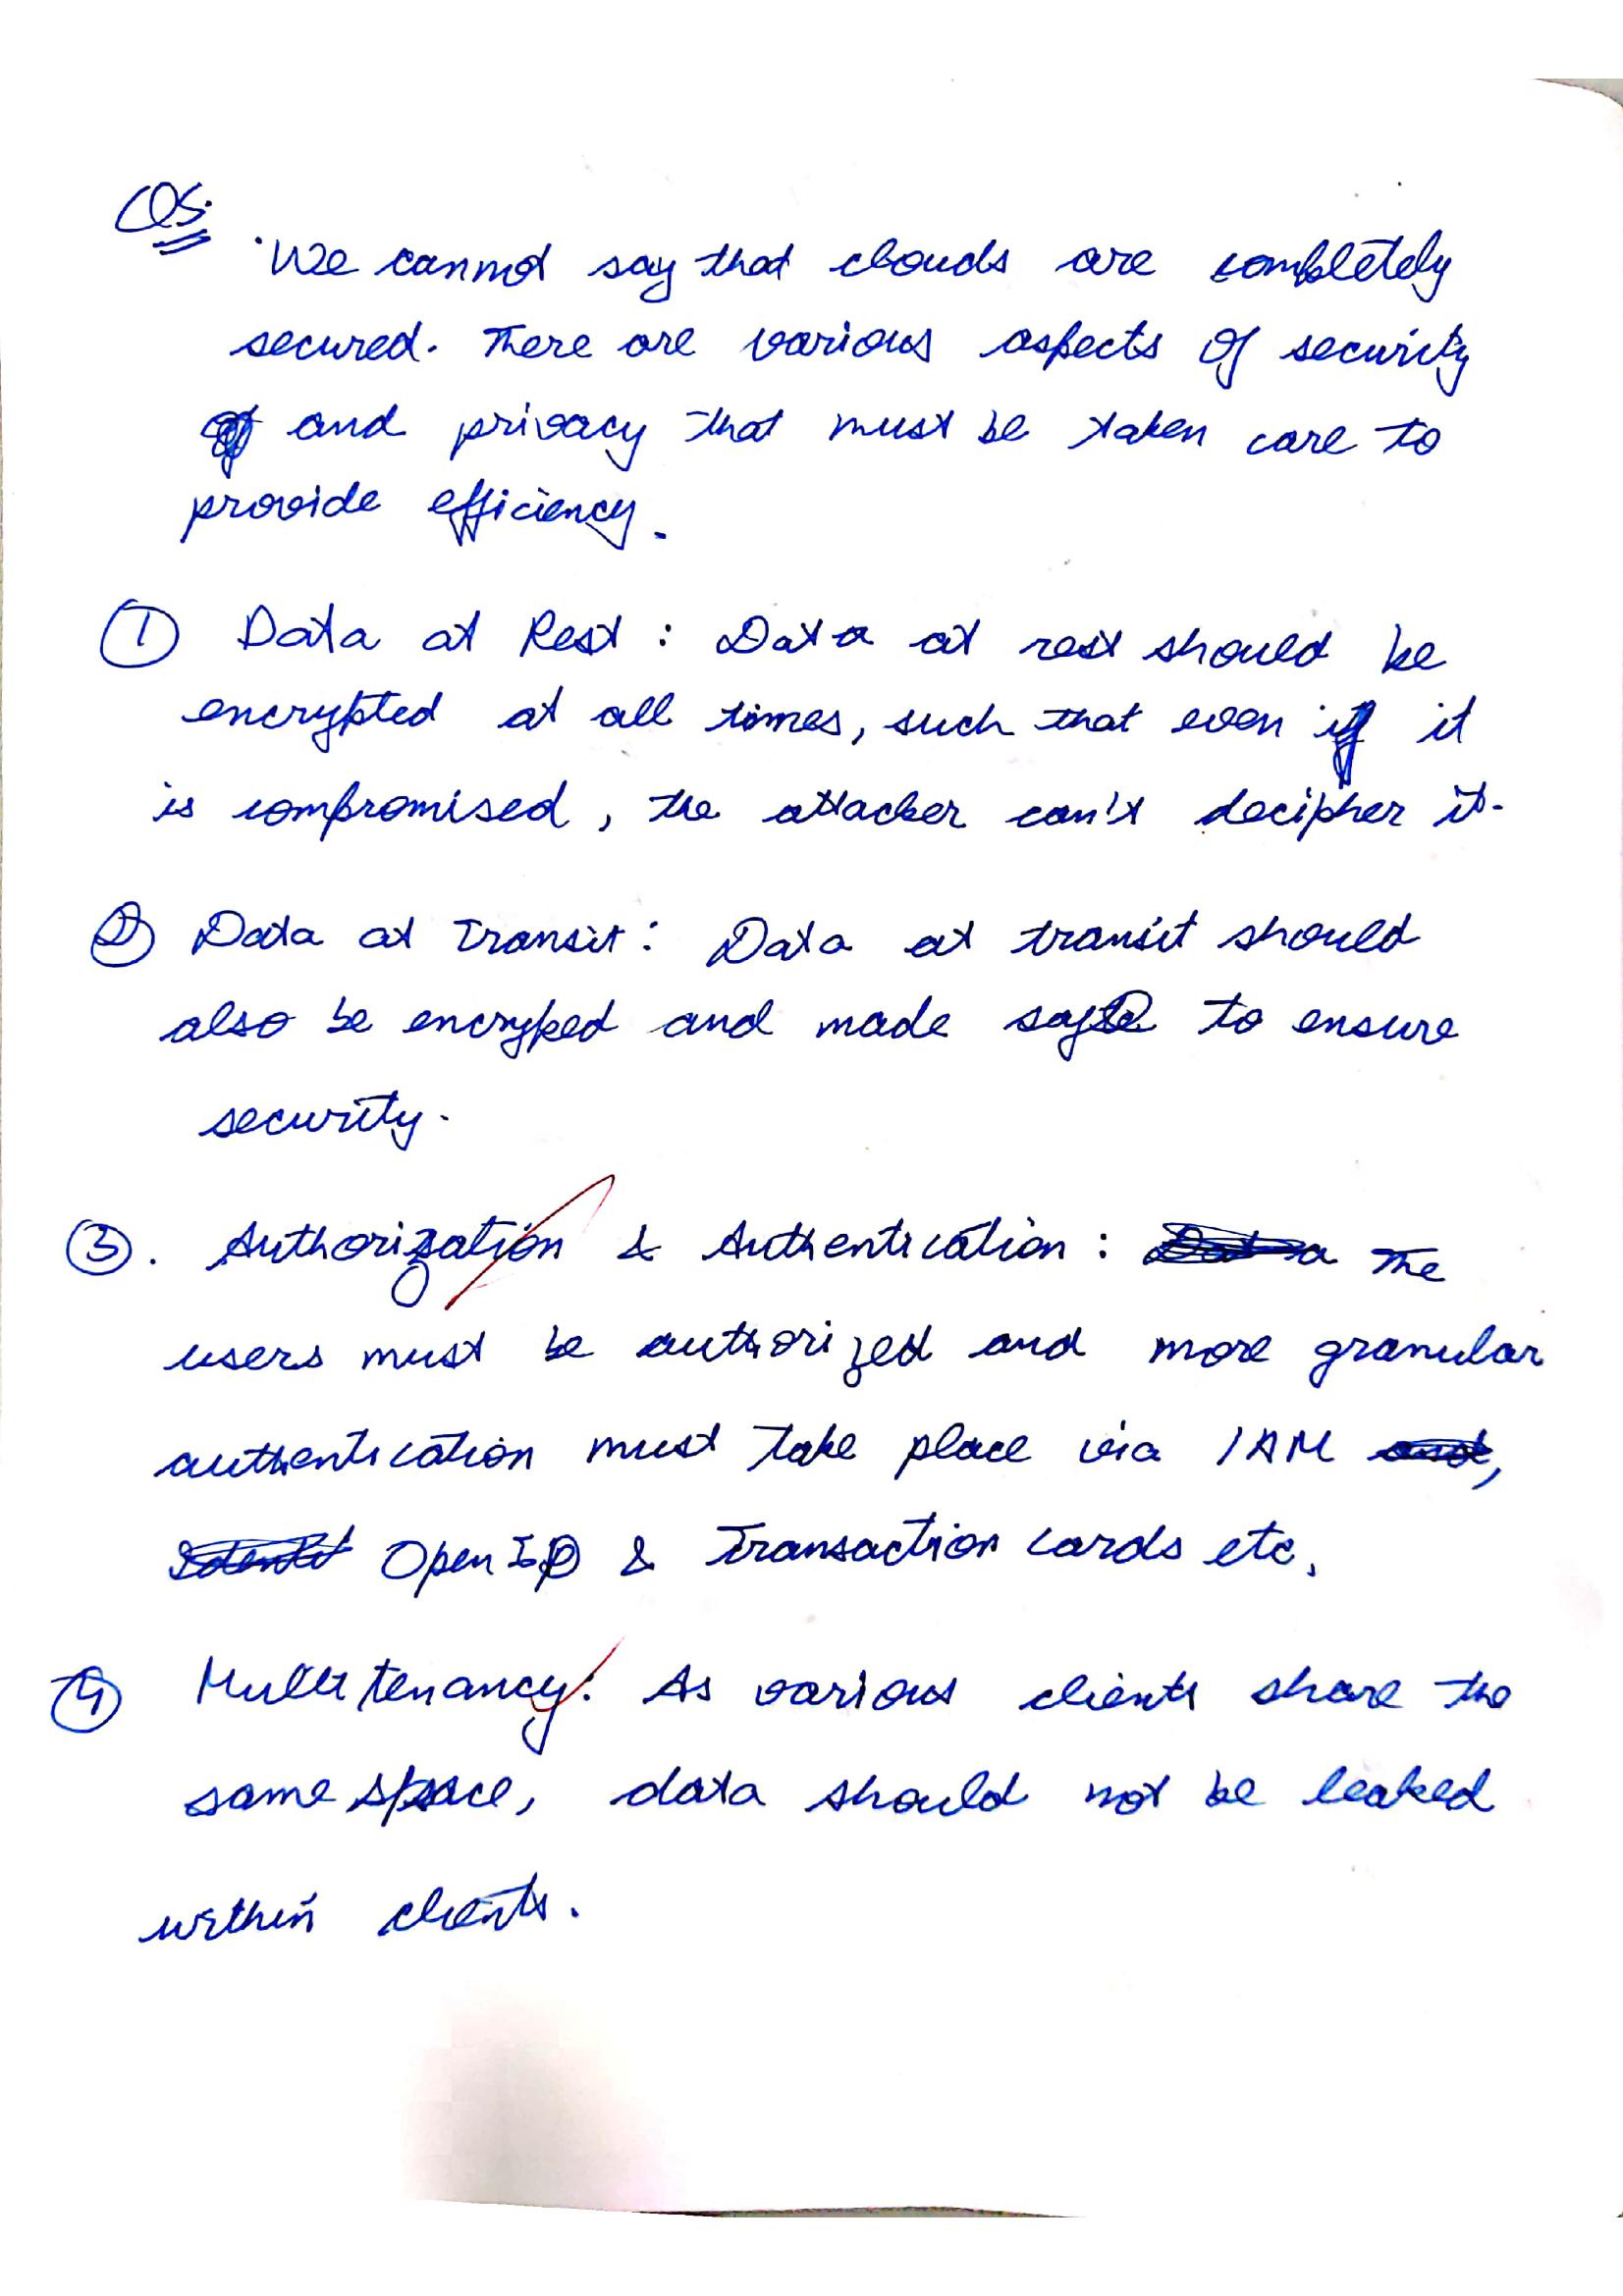 Q5.
We cannot say that clouds are completely
secured. There are various aspects of security
and privacy that must be taken care to
provide efficiency.
① Data at Rest : Data at rest should be
encrypted at all times, such that even if it
is compromised, the attacker can't decipher it.
② Data at Transit : Data at transit should
also be encryped and made safe to ensure
security.
③. Authorization & Authentication : The
users must be authorized and more granular
authentication must take place via IAM,
OpenID & Transaction cards etc.
④ Multitenancy : As various clients share the
same space, data should not be leaked
within clients.